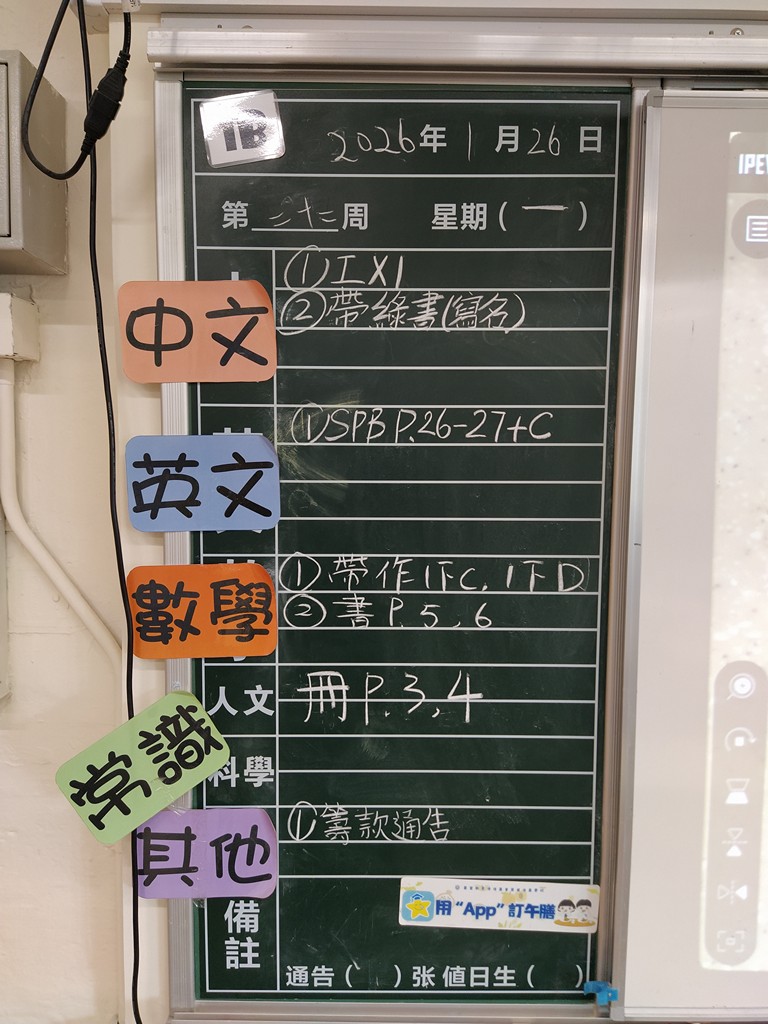 1B
2026年1月26日
第二十二周 星期(一)
①工X1
②帶綠書(寫名)
中文
①SPB P.26-27+C
英文
①帶作1下C,1下D
②書P.5,6
數學
人文 冊P.3,4
常識
科學
①籌款通告
其他
用“App”訂午膳
備註
通告( )张 値日生( )
IPEV